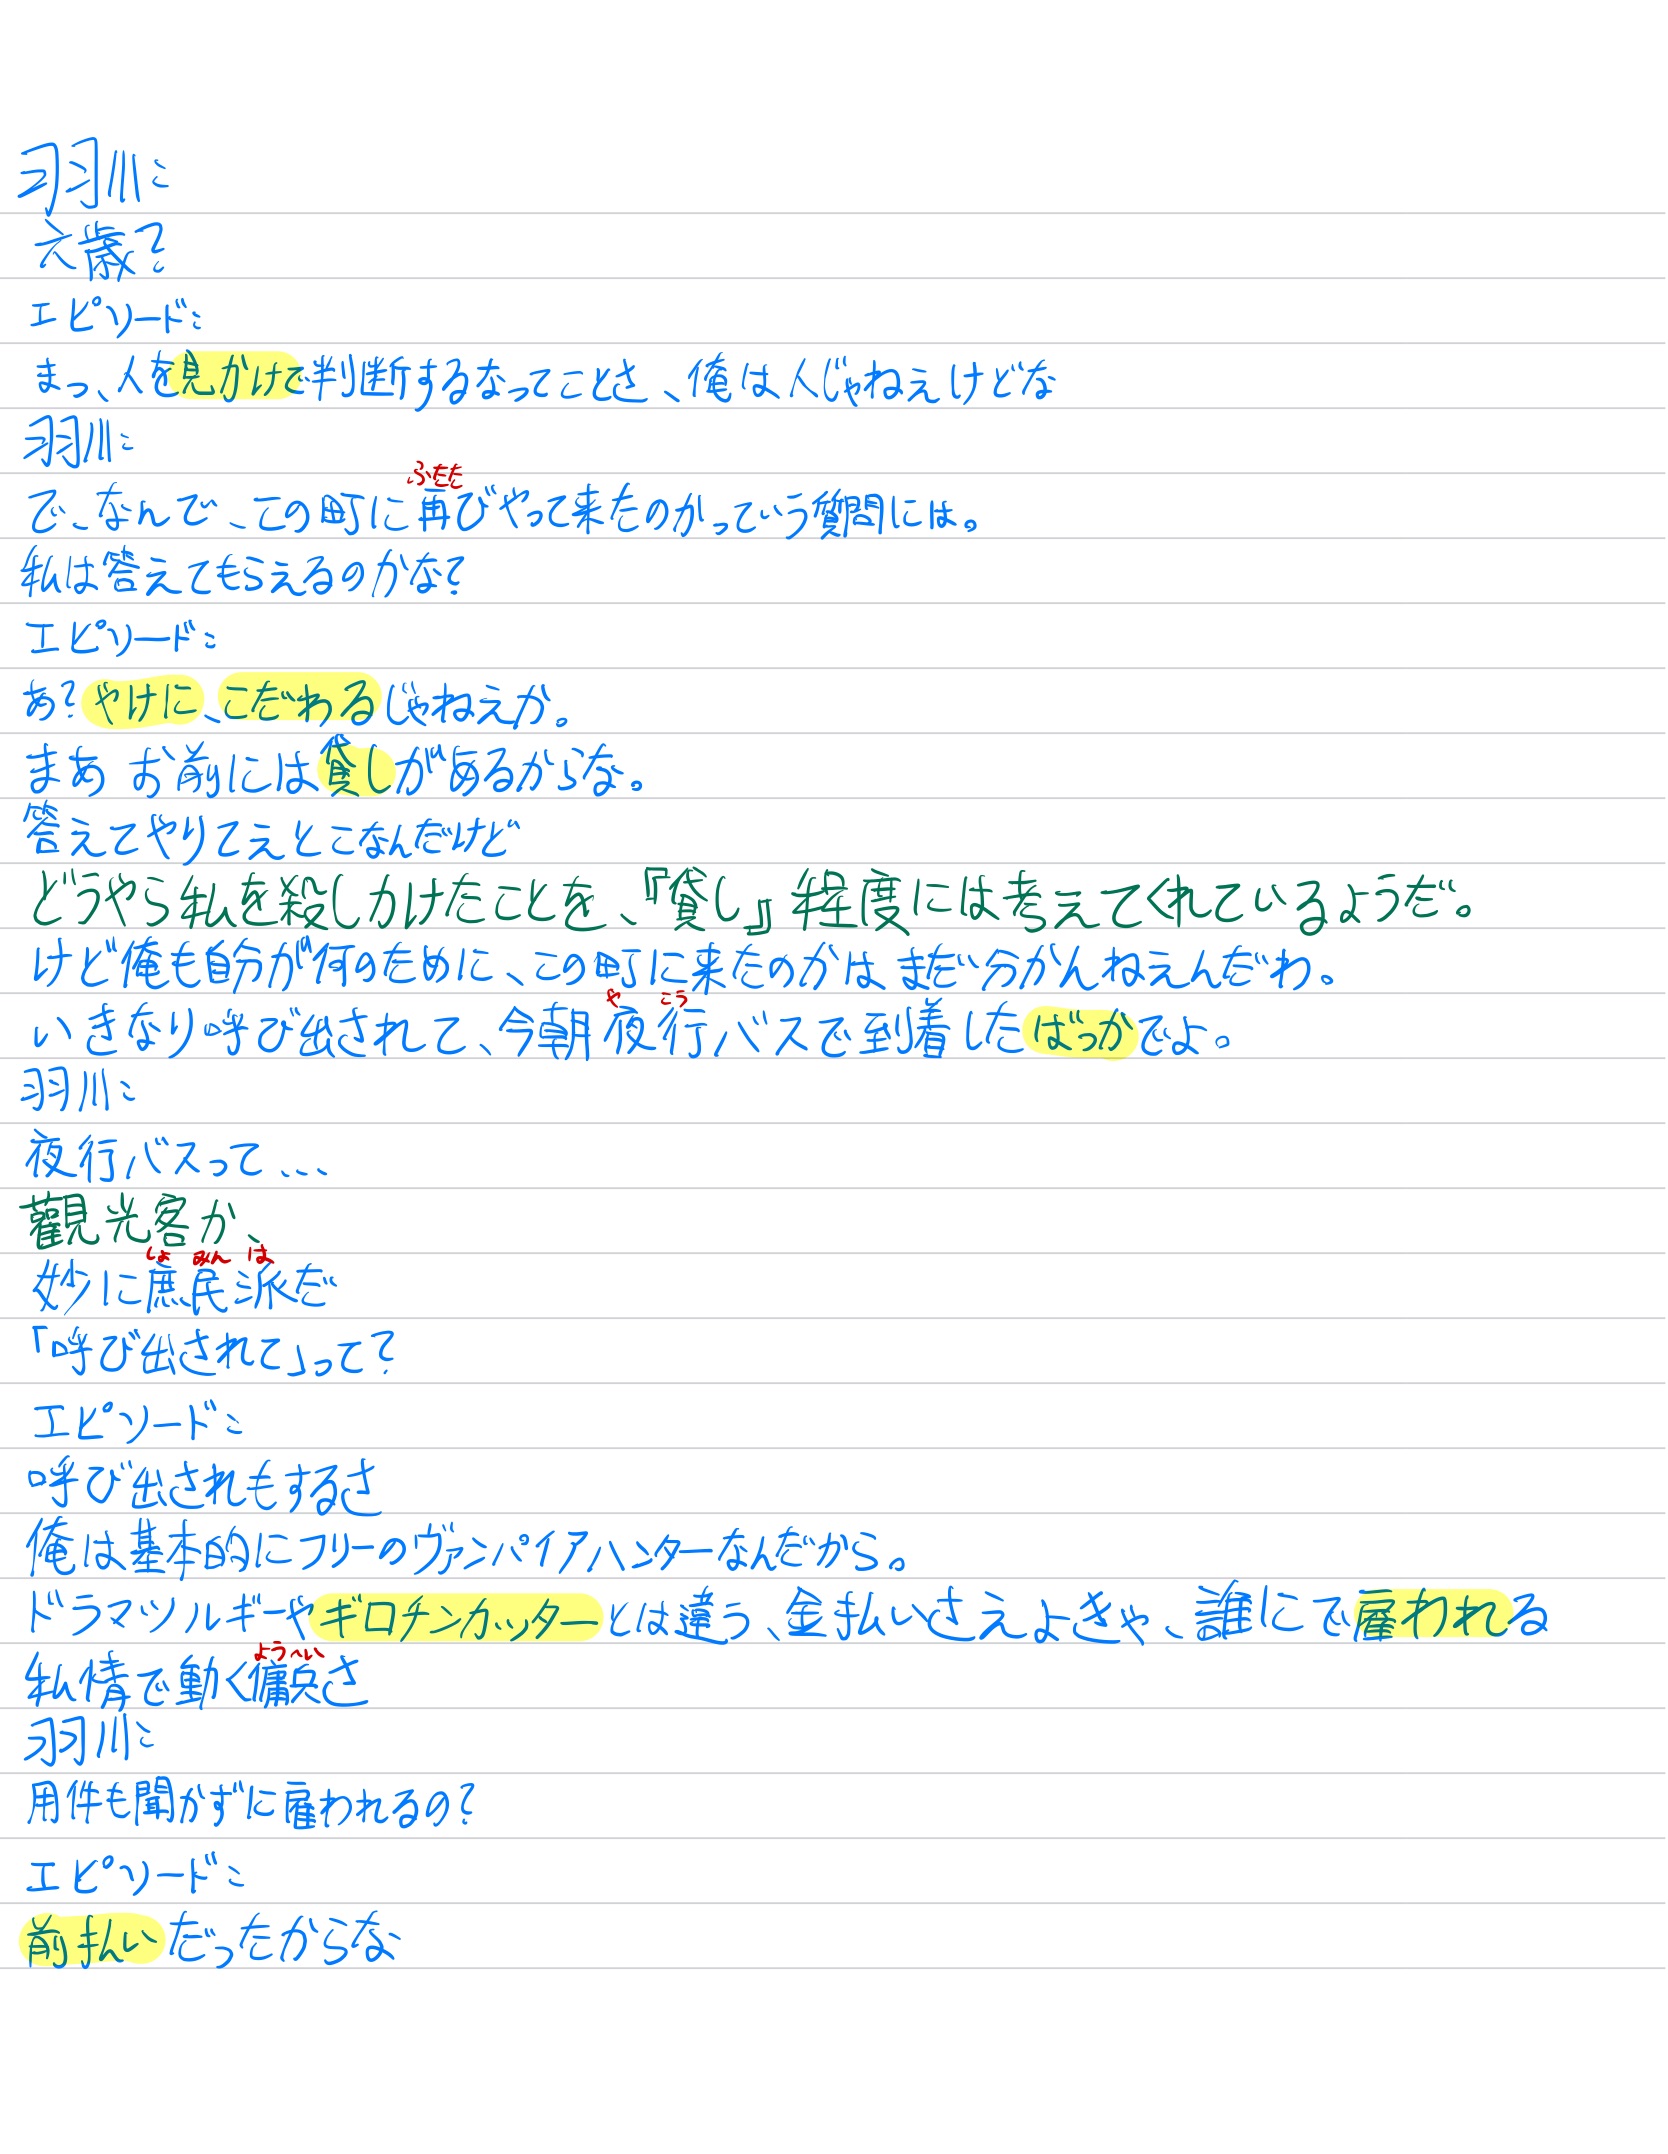 羽川:
六歳?
エピソード:
まっ、人を見かけで判断するなってことさ、俺は人じゃねえけどな
羽川:
ふたた
で、なんで、この町に再びやって来たのかっていう質問には。
私は答えてもらえるのかな?
エピソード:
あ?やけに、こだわるじゃねえか。
まあ お前には貸しがあるからな。
答えてやりてえとこなんだけど
どうやら私を殺しかけたことを、『貸し』程度には考えてくれているようだ。
けど俺も自分が何のために、この町に来たのかは まだ分かんねえんだわ。
や こう
いきなり呼び出されて、今朝夜行バスで到着したばっかでよ。
羽川:
夜行バスって...
觀光客か、
しょ みん は
妙に庶民派だ
「呼び出されて」って?
エピソード:
呼び出されもするさ
俺は基本的にフリーのヴァンパイアハンターなんだから。
ドラマツルギーやギロチンカッターとは違う、金払いさえよきゃ、誰にで雇われる
ようへい
私情で動く傭兵さ
羽川:
用件も聞かずに雇われるの?
エピソード:
前払いだったからな